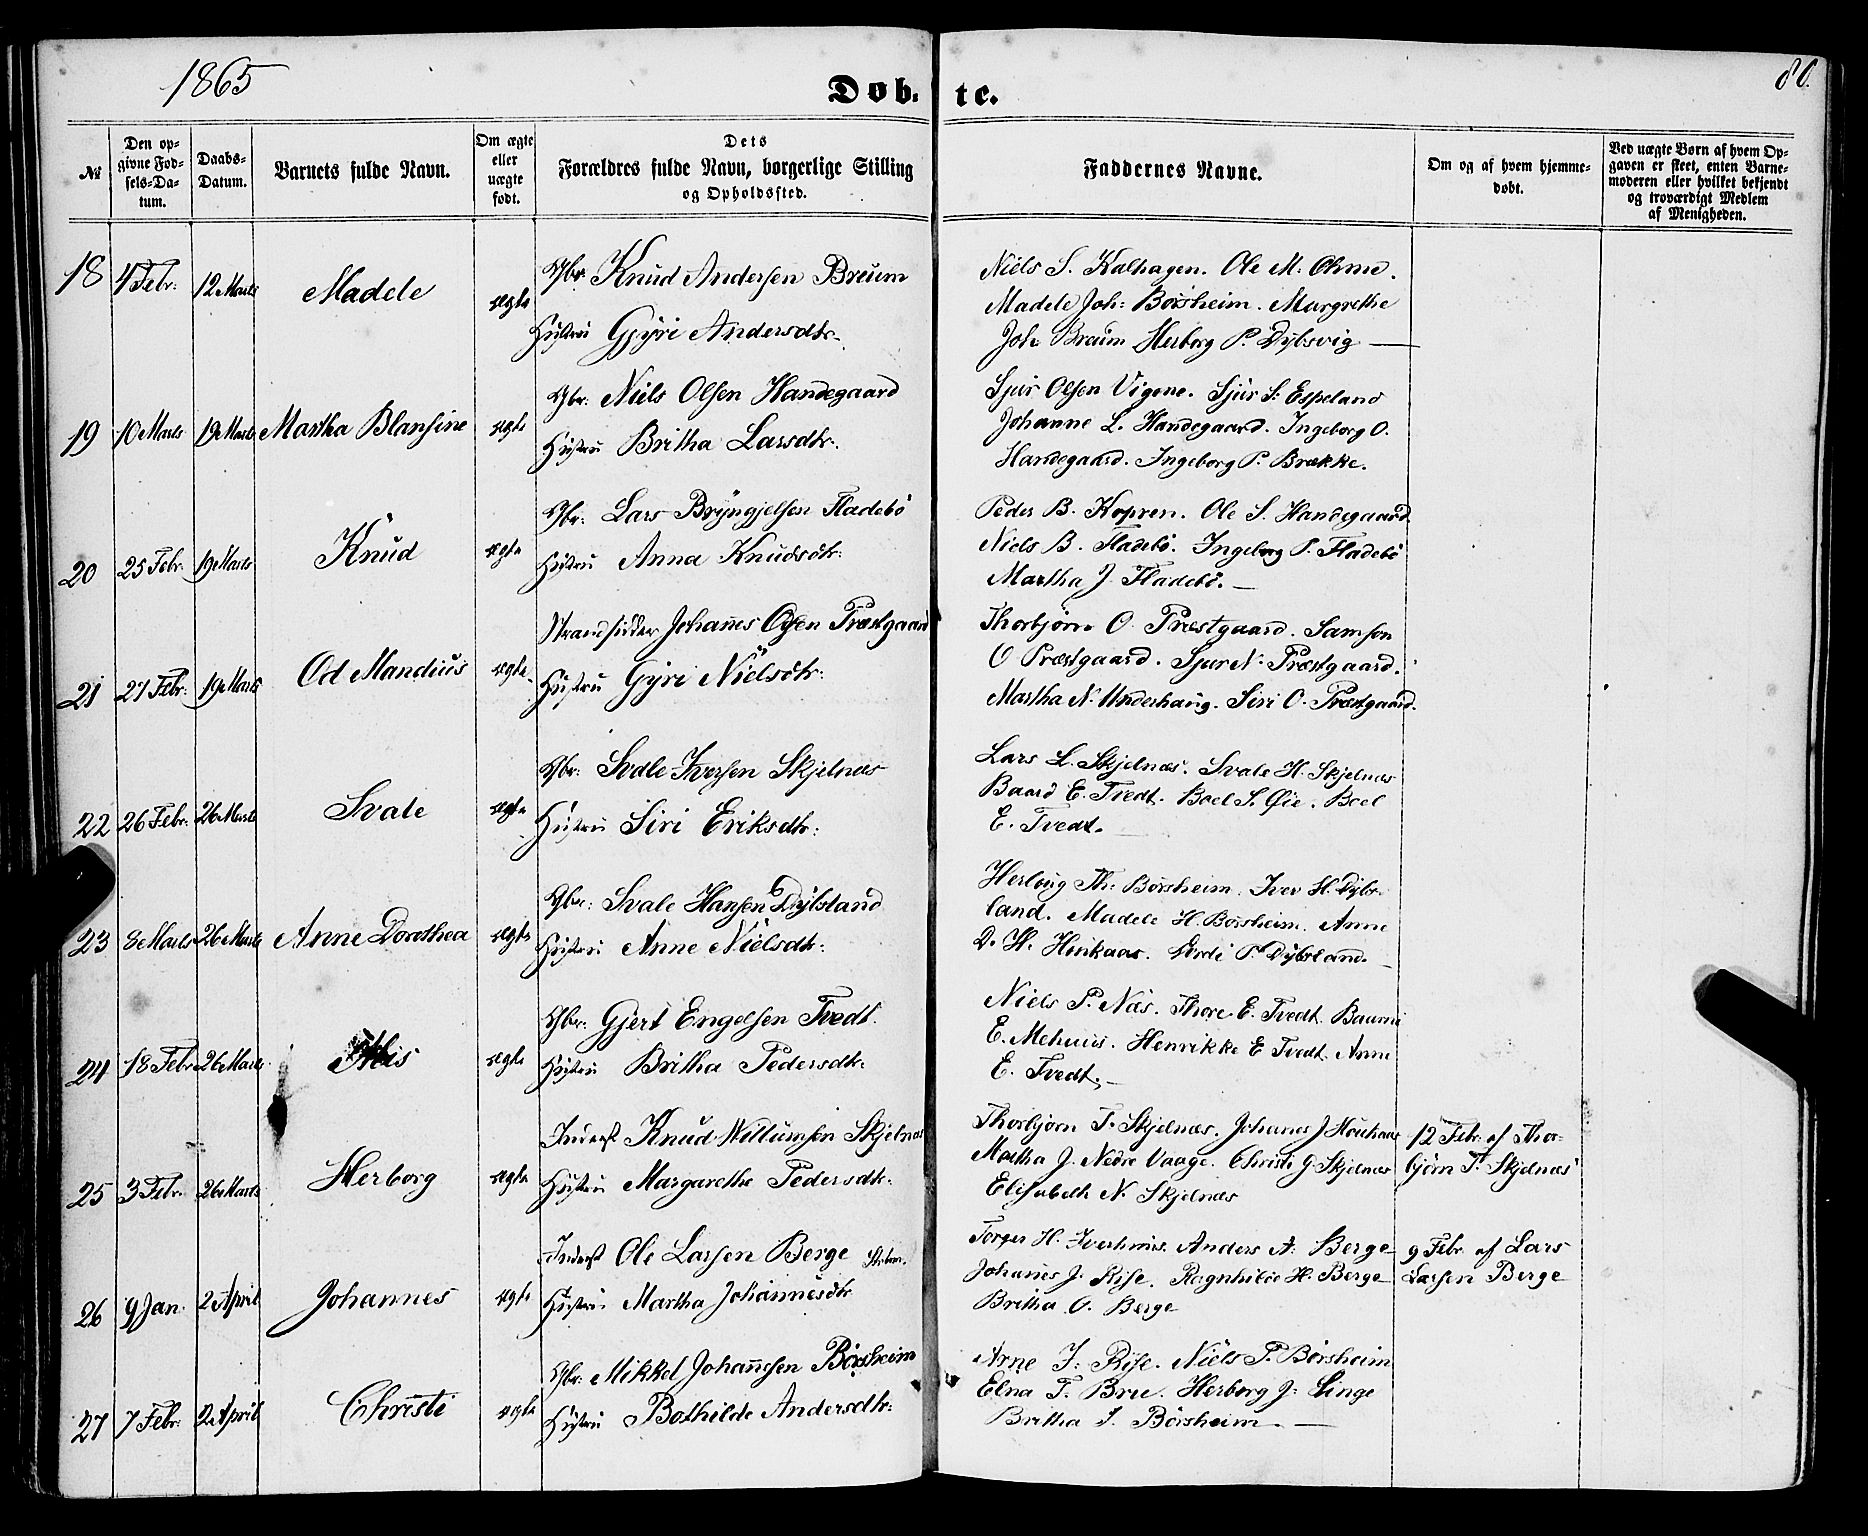 1865
Døb- te.
80.
№
Den op-
givne Fød-
sels-Da-
tum.
Daabs-
Datum.
Barnets fulde Navn.
Om ægte
eller
uægte
født.
Dets
Forældres fulde Navn, borgerlige Stilling
og Opholdssted.
Faddernes Navne.
Om og af hvem hjemme-
døbt.
Ved uægte Børn af hvem Op-
gaven er skeet, enten Barne-
moderen eller hvilket bekjendt
og troværdigt Medlem
af Menigheden.
18 4 Febr: 12 Marts Madele ægte
Gbr: Knud Andersen Breum
Hustru Gyri Andersdtr.
Niels S. Kalhagen. Ole M. Ohme.
Madele Joh: Börsheim. Margrethe
Joh Braim Herborg P. Dybsvig
19 10 Marts 19 Marts Martha Blansine ægte
Gbr: Niels Olsen Handegaard
Hustru Britha Larsdtr:
Sjur Olsen Vigene. Sjur S. Espeland
Johanne L. Handegaard. Ingeborg O.
Handegaard. Ingeborg P. Brække.
20 25 Febr. 19 Marts Knud ægte
Gbr: Lars Bryngjelsen Fladebö
Hustru Anna Knudsdtr:
Peder B. Kopren. Ole S. Handegaard
Niels B. Fladebö. Ingeborg P. Fladebö
Martha J. Fladebö.
21 27 Febr: 19 Marts Od Mandius ægte
Strandsidder Johannes Olsen Præstgaard
Hustru Gyri Nielsdtr:
Thorbjörn O. Præstgaard. Samson
O Præstgaard. Sjur N. Præstgaard.
Martha N. Underhaug. Siri O. Præstgaard.
22 26 Febr: 26 Marts Svale ægte
Gbr: Svale Iversen Skjelnæs
Hustru Siri Eriksdtr:
Lars L. Skjelnæs. Svale H. Skjelnæs
Baard E. Tvedt. Boel S. Øie. Boel
E. Tvedt.
23 8 Marts 26 Marts Anne Dorothea ægte
Gbr: Svale Hansen Dybsland
Hustru Anne Nielsdtr:
Herloug Th: Börsheim. Iver H. Dybs-
land. Madele H. Börsheim. Anne
D. H. Honkaas. Gurdi P. Dybsland.
24 18 Febr. 26 Marts ægte
Gbr: Gjert Engelsen Tvedt.
Hustru Britha Pedersdtr.
Niels P. Næs. Thore E. Tvedt.
E. Mehuus. Henrikke E Tvedt. Anne
E. Tvedt.
25 3 Febr. 26 Marts Herborg ægte
Inderst Knud Villumsen Skjelnæs
Hustru Margarethe Pedersdtr.
Thorbjörn T. Skjelnæs. Johannes J
Martha J. Nedre Vaage. Christi G. Skjelnæs
Elisabeth N. Skjelnæs
12 Febr. af Thor-
björn T. Skjelnæs
26 9 Jan. 2 April Johannes ægte
Inderst Ole Larsen Berge
Hustru Martha Johannesdtr
Torger H. Anders A. Berge
Johannes J. Rise. Ragnhilde H. Berge
Britha O. Berge
9 Febr. af Lars
Larsen Berge
27 7 Febr: 2 April Christi ægte
Gbr. Mikkel Johannesen Börsheim
Hustru Bothilde Andersdtr:
Arne J. Rise. Niels P. Börsheim
Elna T. Brue. Herborg J: Linge
Britha J. Börsheim.